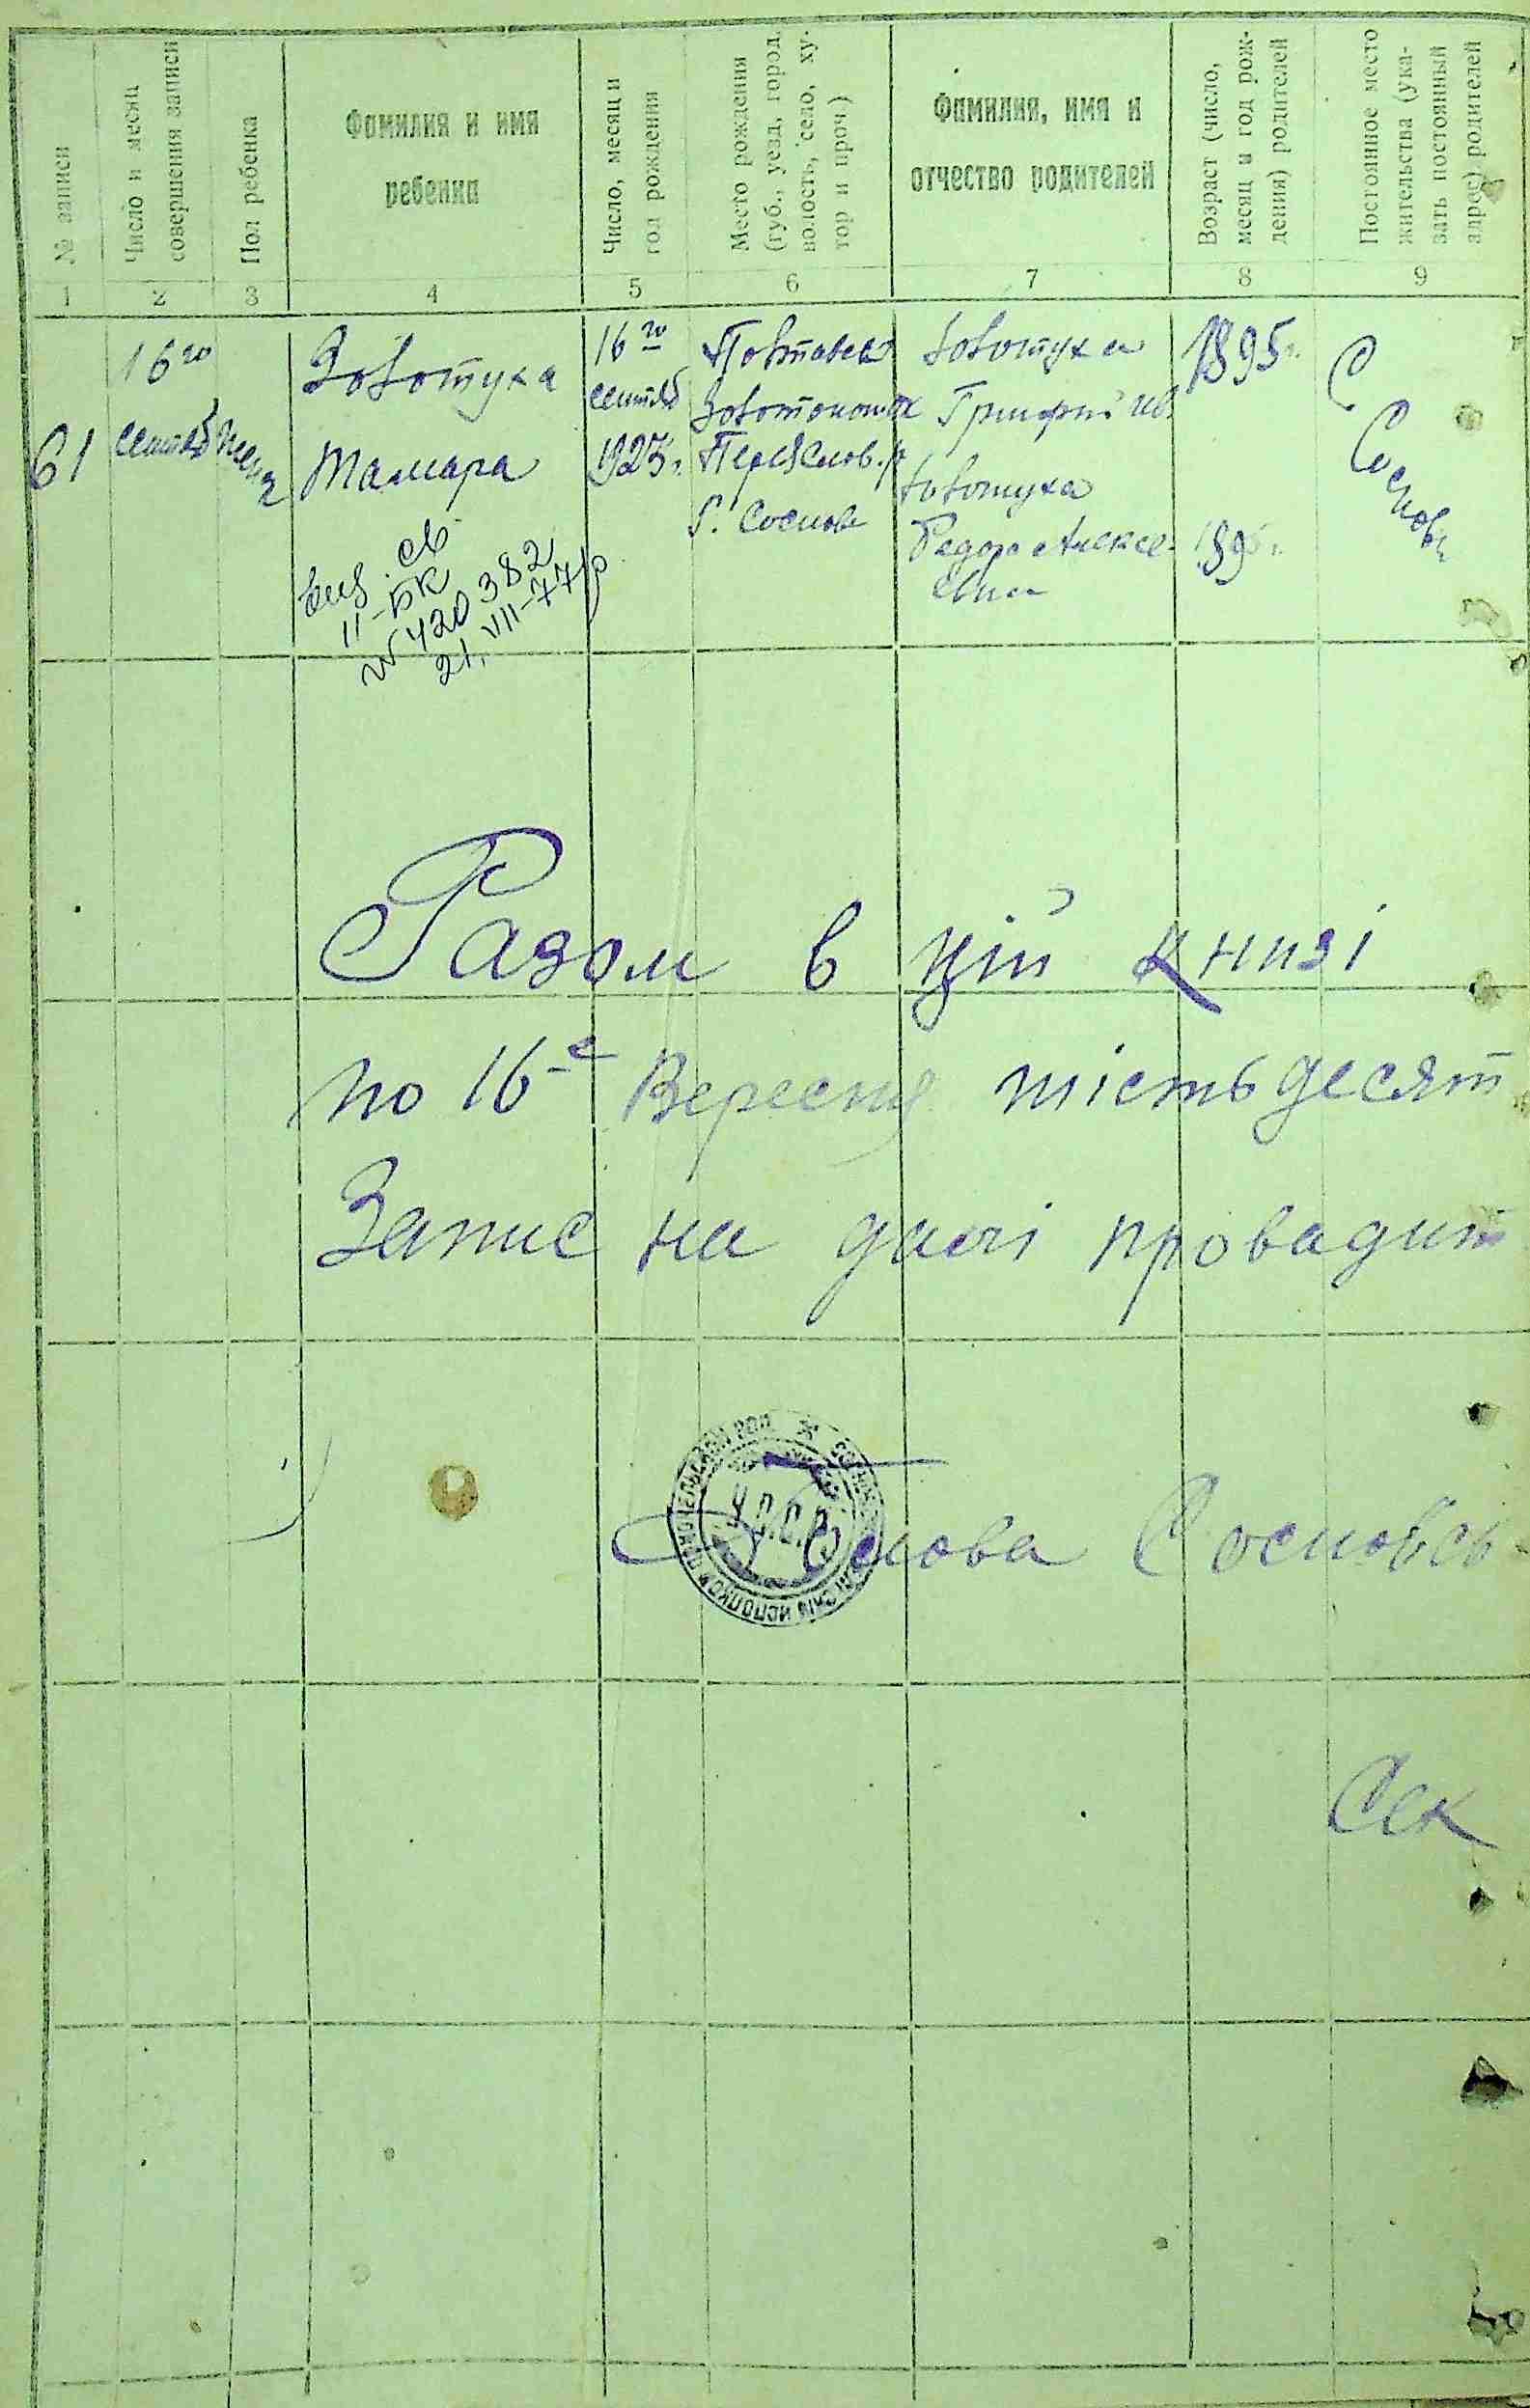 № записи
Число и месяц
совершения записи
Пол ребенка
Фамилия и имя
ребенка
Число, месяц и
год рождения
Место рождения
(губ., уезд, город,
волость, село, ху-
тор и проч.)
Фамилия, имя и
отчество родителей
Возраст (число,
месяц и год рож-
дения) родителей
Постоянное место
жительства (ука-
зать постоянный
адрес) родителей
1 2 3 4 5 6 7 8 9
61
16го
сентяб
Золотуха
Тамара
Выд. св
II-БК
№ 420382
21.VII-77р
16го
сентяб
1923 г.
Полтавск
Золотонош ок
Переяслов. р
С. Соснова
Золотуха
Григорий Ив.
Золотуха
Федора Алексе-
евна
1895 г.
189
С
Соснова
Разом в цій книзі
по 16-е Вересня шістьдесят
Запис на далі провадит
У.С.С.Р.
Голова Сосновсь-
Сек